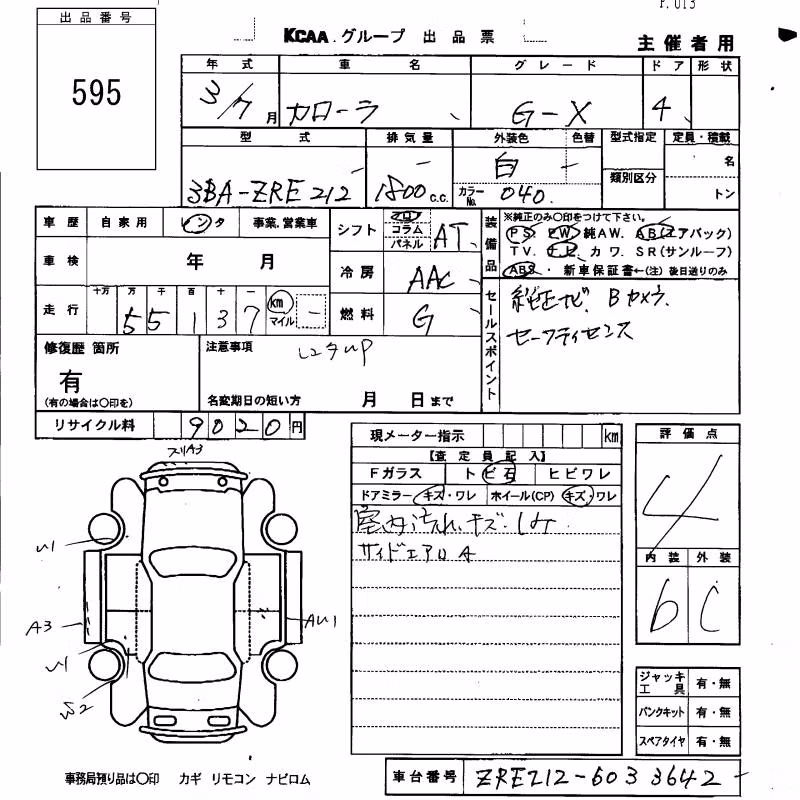 P. 013
出品番号
595
KCAA グループ 出品票
主催者用
年式 車名 グレード ドア 形状
3/7月 カローラ G-X 4
型式 排気量 外装色 色替 型式指定 定員・積載
3BA-ZRE212 1800 c.c. 白 カラーNo. 040 類別区分 名 トン
車歴 自家用 レンタ 事業.営業車
車検 年 月
走行 十万 万 千 百 十 一 55137 km マイル
シフト フロア コラム パネル AT
冷房 AAC
燃料 G
装備品 ※純正のみ○印をつけて下さい。
PS. PW. 純AW. AB(エアバック)
TV. ナビ. カワ. SR(サンルーフ)
ABS・新車保証書←(注)後日送りのみ
セールスポイント
純正ナビ. Bカメラ.
セーフティセンス
修復歴 箇所
有
(有の場合は○印を)
注意事項
レンタUP
名変期日の短い方 月 日まで
リサイクル料 9020円
現メーター指示 km
【査定員記入】
Fガラス ト ビ石 ヒビワレ
ドアミラー キズ・ワレ ホイール(CP) キズ.ワレ
室内汚れ.キズ.
サイドエアロA
評価点
4
内装 外装
b C
ジャッキ工具 有・無
パンクキット 有・無
スペアタイヤ 有・無
A3
A3
AU1
事務局預り品は○印 カギ リモコン ナビロム
車台番号 ZRE212-6033642